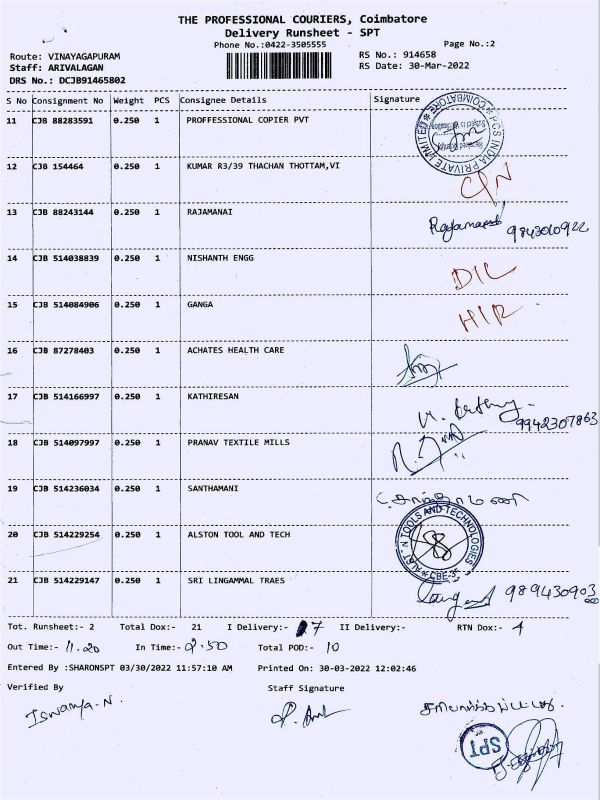 THE PROFESSIONAL COURIERS, Coimbatore
Delivery Runsheet - SPT
Phone No.:0422-3505555
Page No.:2
Route: VINAYAGAPURAM
RS No.: 914658
Staff: ARIVALAGAN
RS Date: 30-Mar-2022
DRS No.: DCJB91465802
S No Consignment No Weight PCS Consignee Details Signature
11 CJB 88283591 0.250 1 PROFFESSIONAL COPIER PVT
PCS INDIA PRIVATE LIMITED * COIMBATORE
12 CJB 154464 0.250 1 KUMAR R3/39 THACHAN THOTTAM,VI
13 CJB 88243144 0.250 1 RAJAMANAI
14 CJB 514038839 0.250 1 NISHANTH ENGG D/L
15 CJB 514084906 0.250 1 GANGA
16 CJB 87278403 0.250 1 ACHATES HEALTH CARE
17 CJB 514166997 0.250 1 KATHIRESAN 9942307863
18 CJB 514097997 0.250 1 PRANAV TEXTILE MILLS
19 CJB 514236034 0.250 1 SANTHAMANI
20 CJB 514229254 0.250 1 ALSTON TOOL AND TECH
TOOLS AND TECHNOLOGIES * CBE-35
21 CJB 514229147 0.250 1 SRI LINGAMMAL TRAES
Tot. Runsheet:- 2 Total Dox:- 21 I Delivery:- 7 II Delivery:- RTN Dox:- 4
Out Time:- 11.20 In Time:- 2.50 Total POD:- 10
Entered By :SHARONSPT 03/30/2022 11:57:10 AM Printed On: 30-03-2022 12:02:46
Verified By Staff Signature
Iswarya.N.
SPT